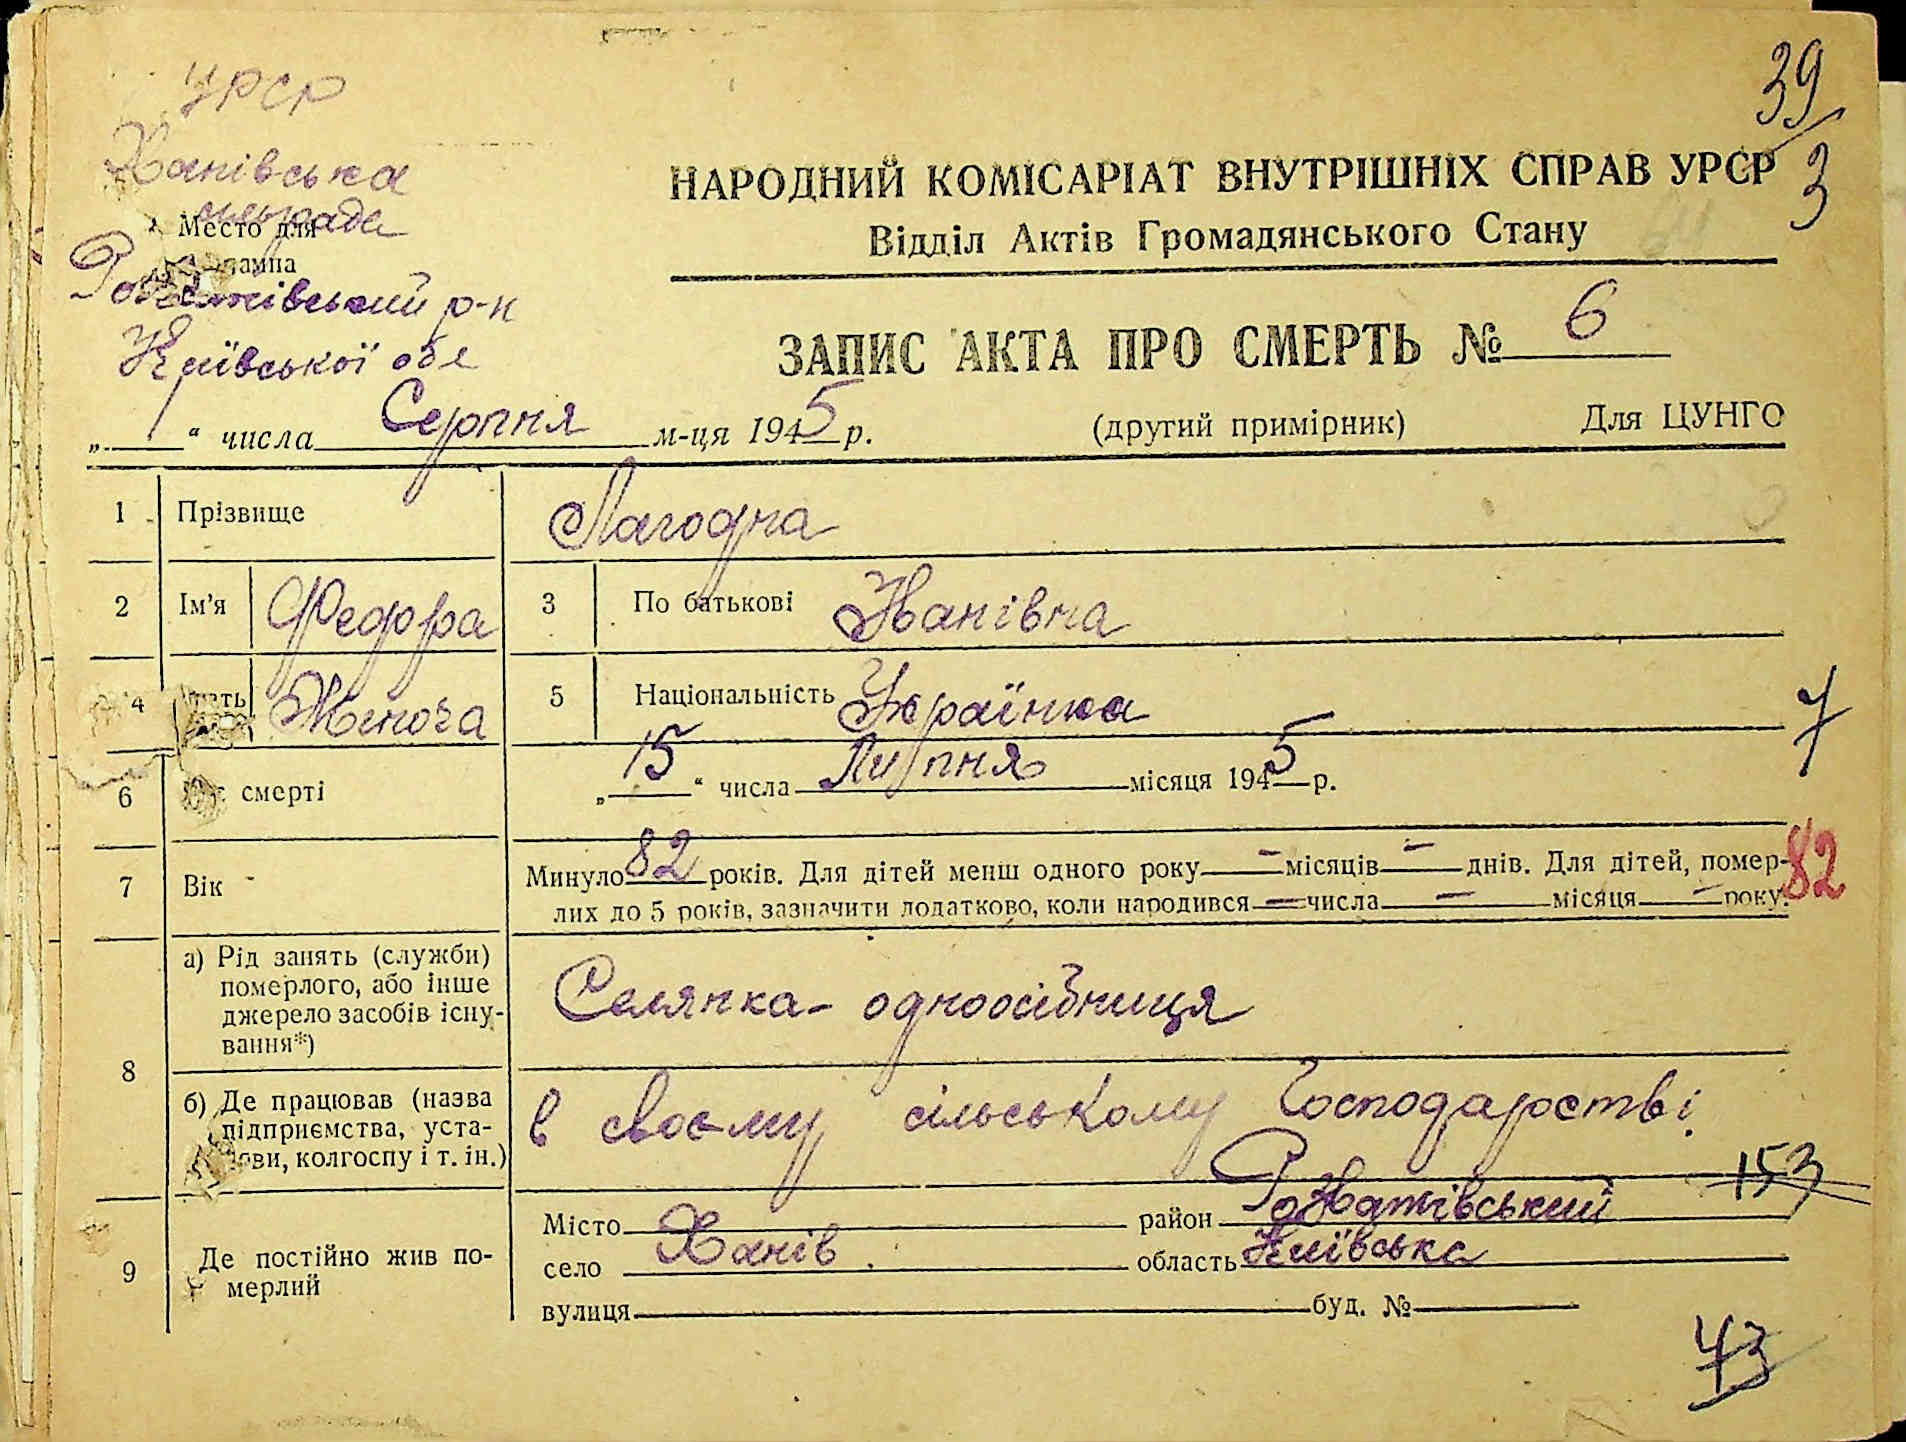 39/3
УРСР
Ханівська
сільрада
Место для
штампа
Розважівський р-н
Київської обл
НАРОДНИЙ КОМІСАРІАТ ВНУТРІШНІХ СПРАВ УРСР
Відділ Актів Громадянського Стану
ЗАПИС АКТА ПРО СМЕРТЬ № 6
„ 1 “ числа Серпня м-ця 1945 р. (другий примірник) Для ЦУНГО
1 Прізвище Лагодна
2 Ім'я Федора 3 По батькові Иванівна
4 Жіноча 5 Національність Українка
7
6 смерті „ 15 “ числа Липня місяця 1945 р.
7 Вік Минуло 82 років. Для дітей менш одного року — місяців — днів. Для дітей, помер-
лих до 5 років, зазначити додатково, коли народився — числа — місяця — року.
82
8 а) Рід занять (служби)
померлого, або інше
джерело засобів існу-
вання*)
Селянка - одноосібниця
б) Де працював (назва
підприємства, уста-
нови, колгоспу і т. ін.)
в своєму сільському господарстві.
153
9 Де постійно жив по-
мерлий
Місто район Розважівський
село Ханів область Київська
вулиця буд. №
43